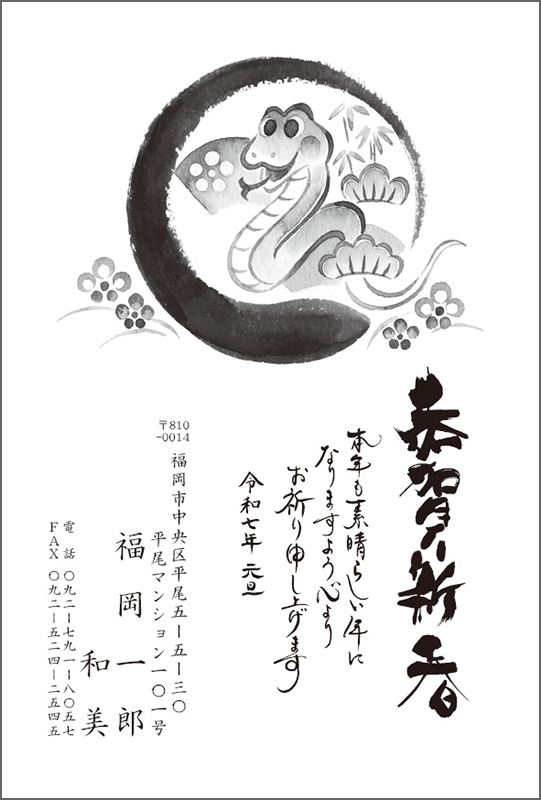 恭賀新春
本年も素晴らしい年に
なりますよう心より
お祈り申し上げます
令和七年 元旦
〒810
-0014
福岡市中央区平尾五ー五ー三〇
平尾マンション一〇一号
福岡 一郎
和美
電話 〇九二ー七九一ー八〇五七
FAX 〇九二ー五二四ー二五四五